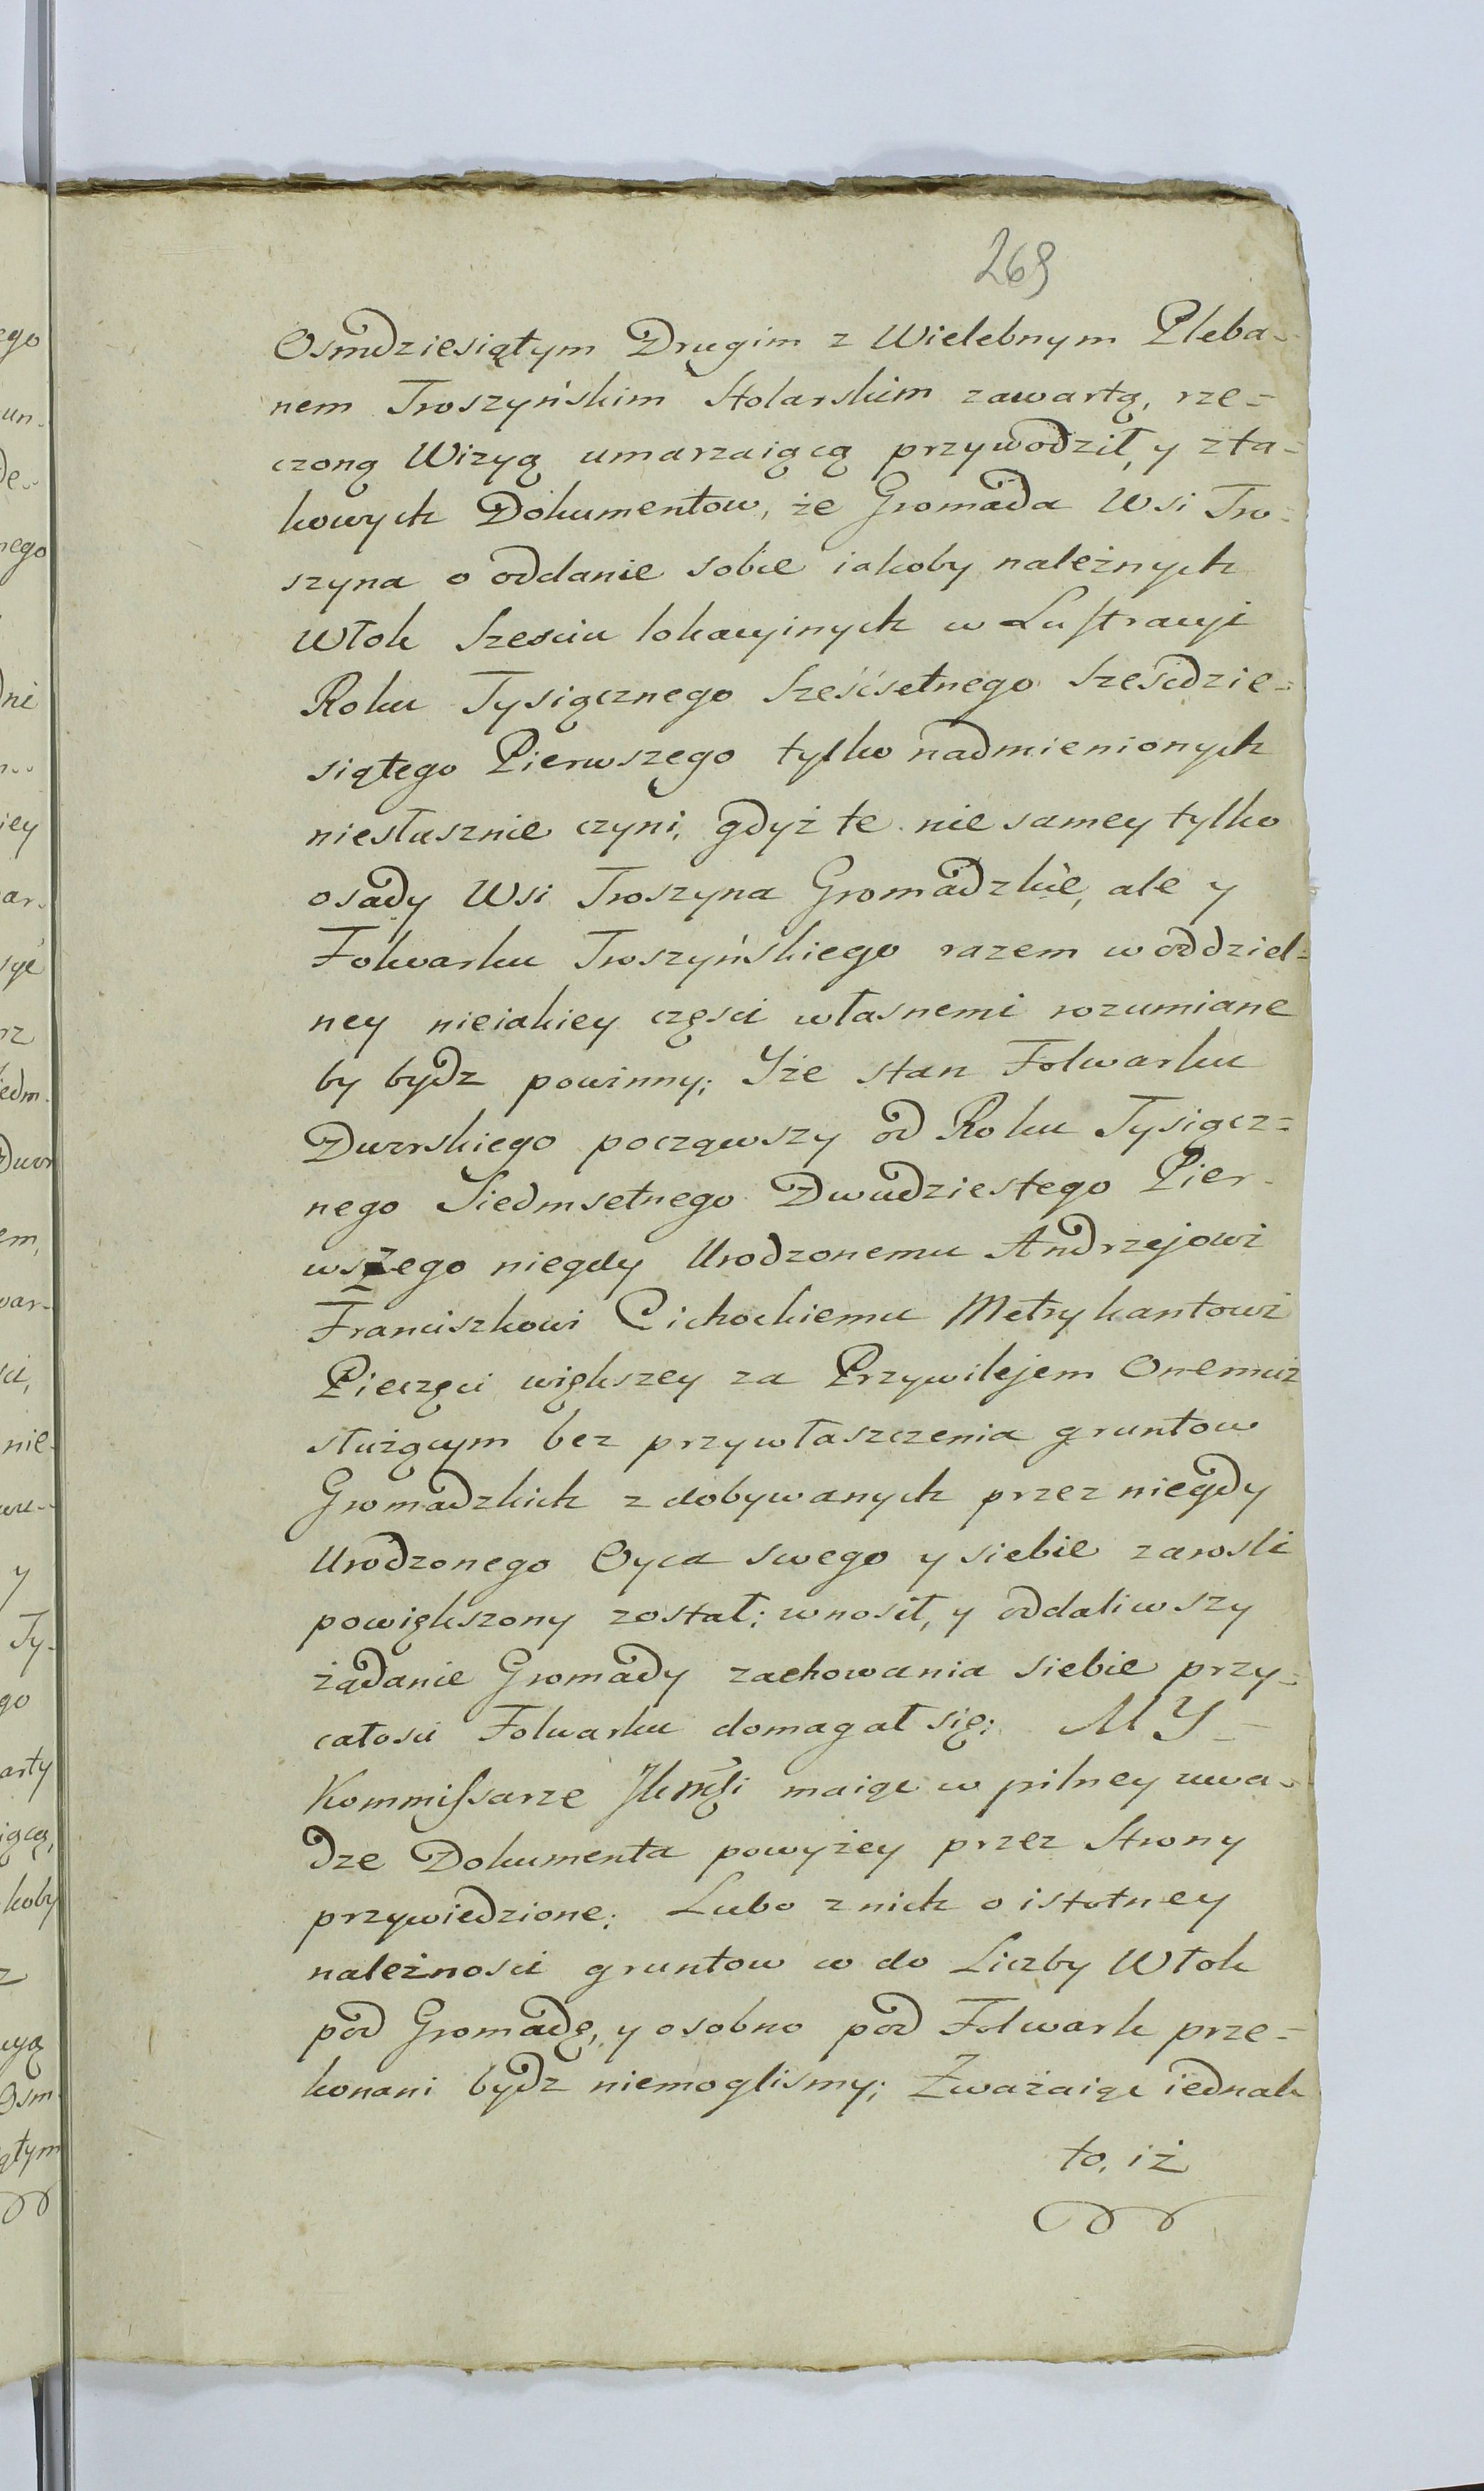 269
Osmdziesiątym Drugim z Wielebnym Pleba-
nem Troszyńskim Stolarskim zawartą, rze=
czoną Wizyą umarzaiącą przywodził, y zta=
kowych Dokumentow, że Gromada Wsi Tro=
szyna o oddanie sobie iakoby należnych
Włok Szesciu lokacyinych w Lustracyi
Roku Tysiącznego Sześćsetnego Sześcdzie=
siątego Pierwszego tylko nadmienionych
niesłusznie czyni, gdyż te nie samey tylko
osady Wsi Troszyna Gromadzkie, ale y
Folwarku Troszyńskiego razem w oddziel=
ney nieiakiey częsci własnemi rozumiane
by bydz powinny; Iże stan Folwarku
Dworskiego począwszy od Roku Tysiącz=
nego Siedmsetnego Dwudziestego Pier-
wszego niegdy Urodzonemu Andrzejowi
Franciszkowi Cichockiemu Metrykantowi
Pieczęci większey za Przywilejem Onemuż
służącym bez przywłaszczenia gruntow
Gromadzkich zdobywanych przez niegdy
Urodzonego Oyca swego y siebie zarosli
powiększony został; wnosił, y oddaliwszy
żądanie Gromady zachowania siebie przy=
całosci Folwarku domagał się; MY
Kommissarze maiąc w pilney uwa-
dze Dokumenta powyżey przez Strony
przywiedzione; Lubo z nich o istotney
należnosci gruntow w do Liczby Włok
pod Gromadę, y osobno pod Folwark prze=
konani bydz niemoglismy; Zważaiąc iednak
to, iż
ego
un-
de-
nego
dni
iey
ar-
rz
iedm-
Dwor
em,
war-
sci,
nie-
y
Ty-
go
arty
iącą,
koby
z
Osm
ątym